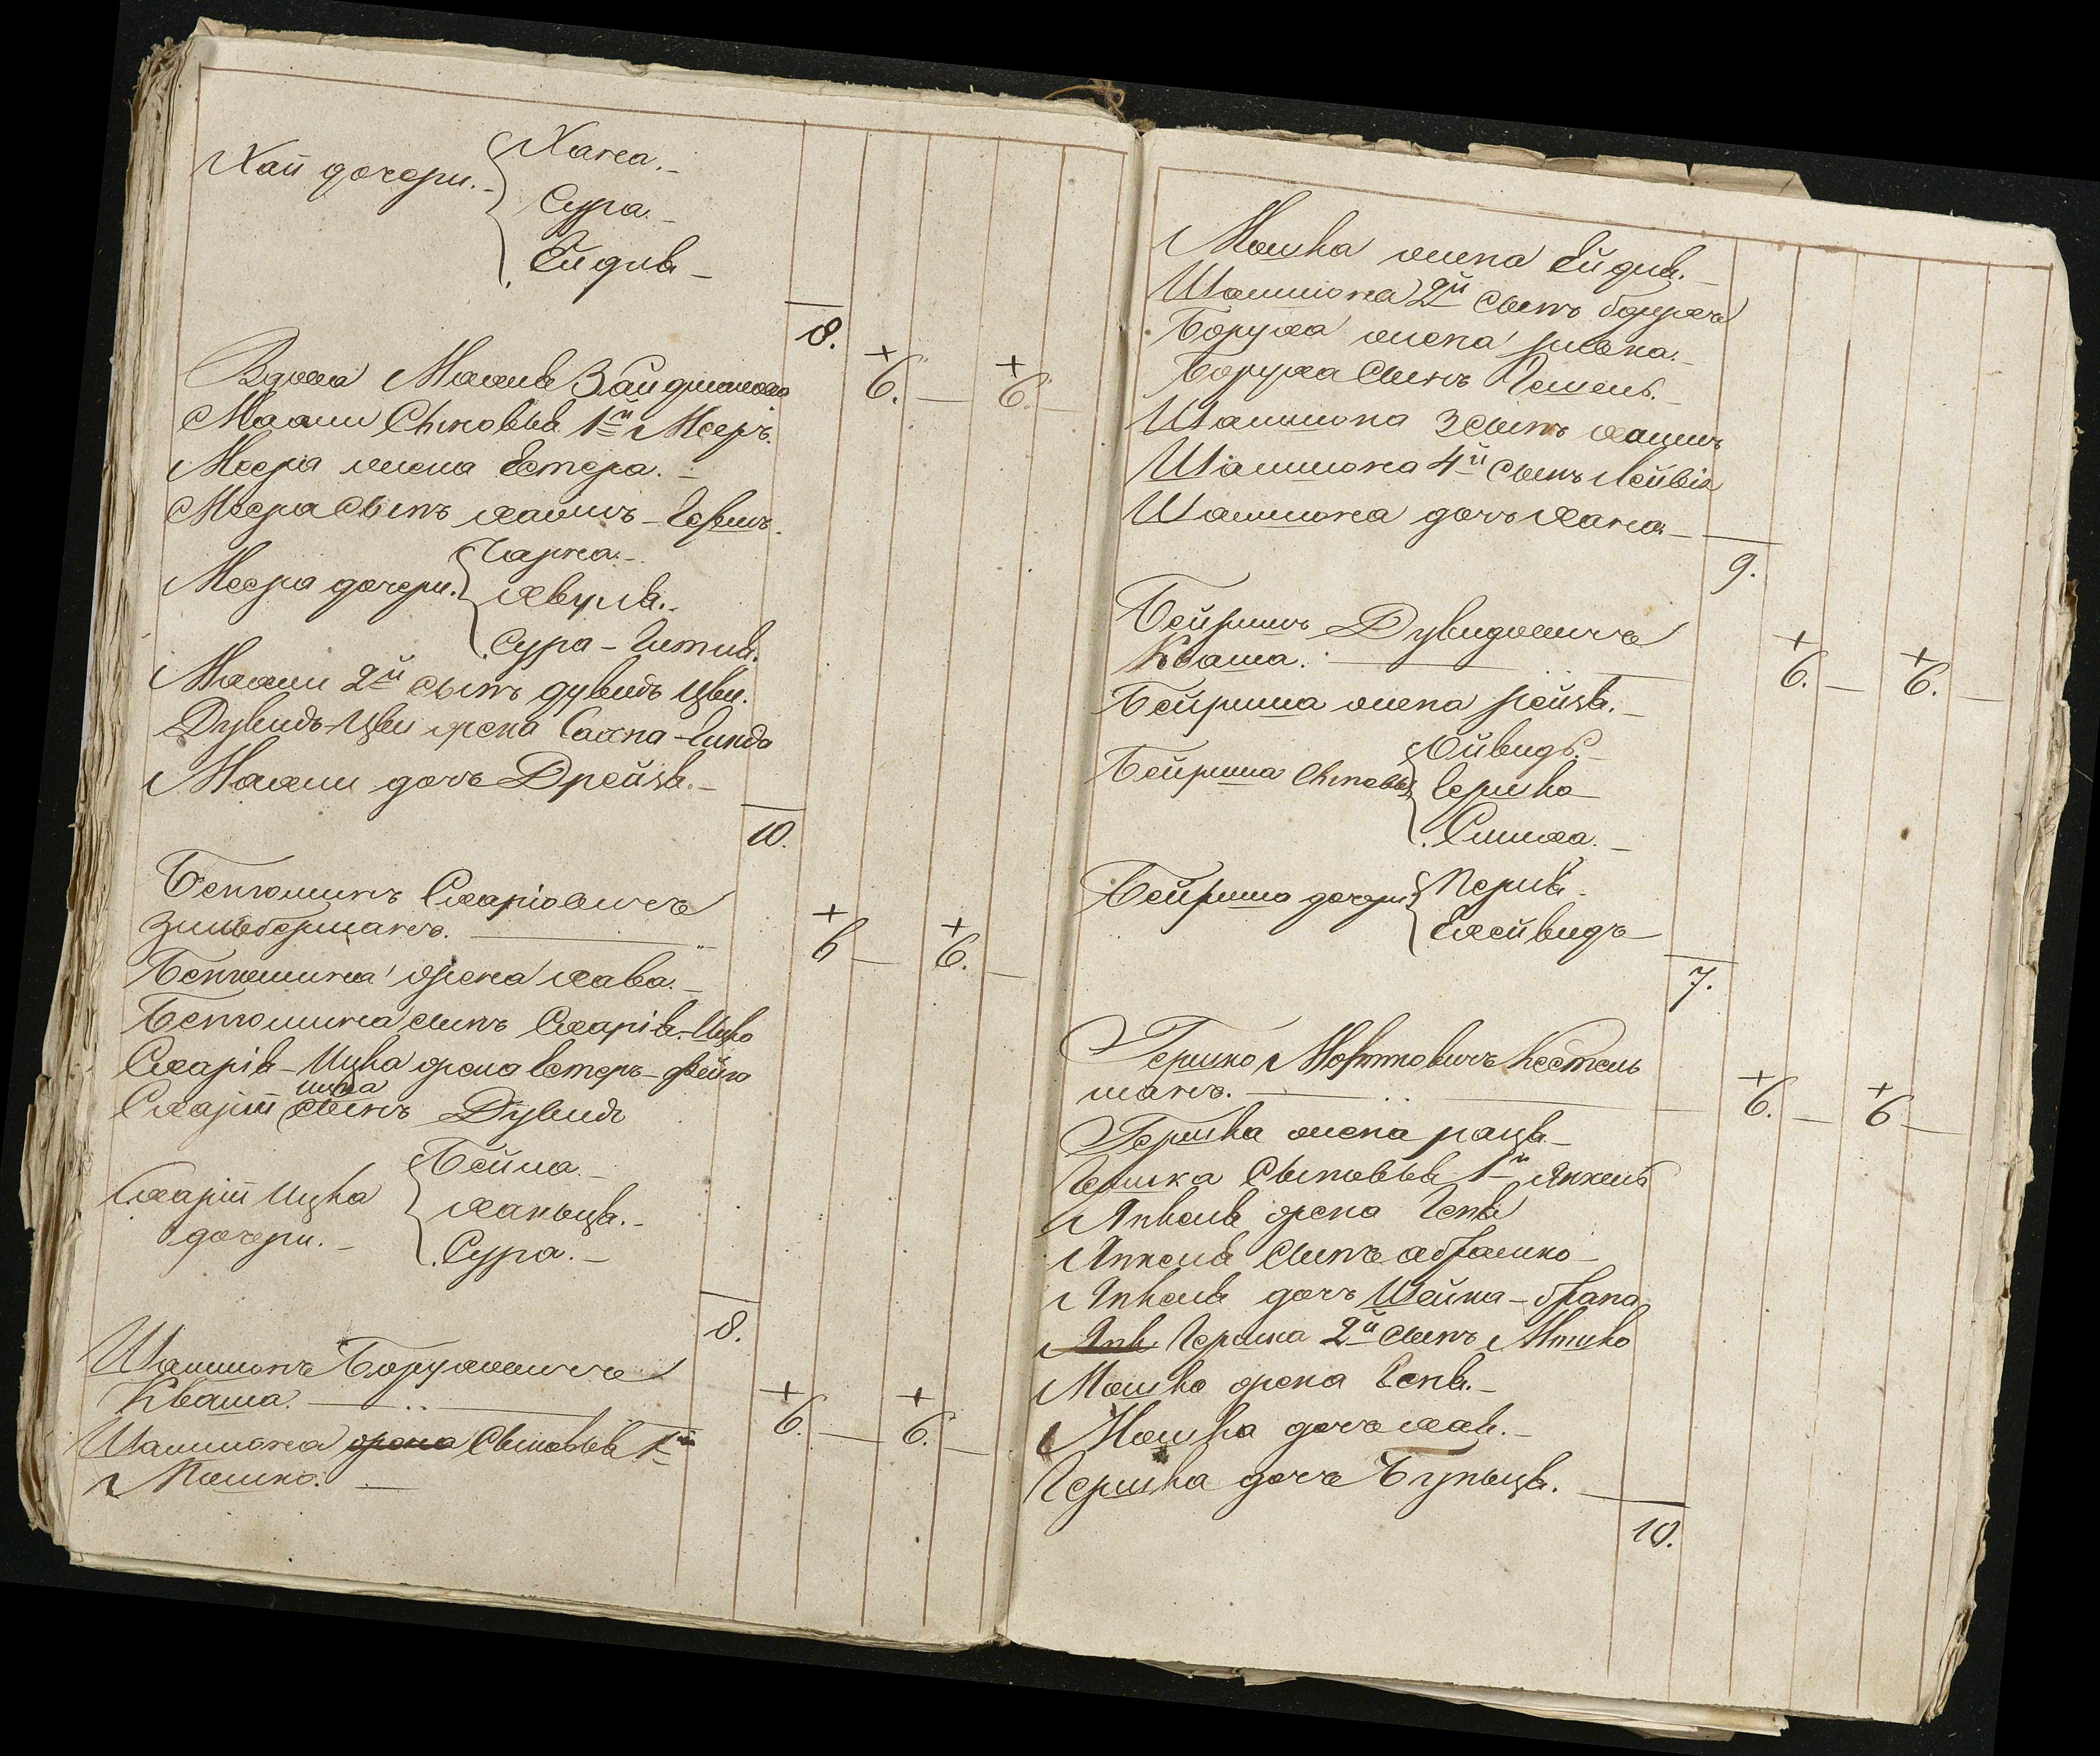 Хаи дочери.
Ханa.
Сура.
Ейдля
8.
Вдова Малия Зайдманова
6. 6.
Малии Сыновья 1й Меер.
Меера жена Естера.
Меера Сынъ Хаимъ - Гершъ.
Меера дочери.
Чарна.
Хвуля.
Сура - Гитля.
Малии 2й Сынъ Дувидъ Цви.
Дувидъ-Цви жена Хасна - Гинда
Малии дочь Дрейзя.
10.
Бенюминъ Схаріовичъ
Зильберманъ.
6 6.
Бенюмина жена Хава.
Бенюмина сынъ Схарія - Ицко
Схарія - Ицка жена Естеръ - Фейга
Ицка
Схаріи Сынъ Дувидъ
Схаріи Ицка
дочери.
Бейла.
Ханьця.
Сура.
8.
Шамшонъ Боруховичъ
Кваша.
6. 6.
Шамшона жена Сыновья 1й
Мошко.
Мошка жена Ейдля.
Шамшона 2й Сынъ Борухъ
Боруха жена Ривка.
Боруха Сынъ
Шамшона 3 Сынъ Хаимъ
Шамшона 4й Сынъ Лейвія
Шамшона дочь Хана
9.
Бейришъ Дувидовичъ
Кваша.
6. 6.
Бейриша жена Рейзя.
Бейриша Сыновья
Дйвидъ.
Гершко
Симха.
Бейриша дочери
Перля.
Ехейвидъ
7.
Гершко Мортковичъ Кестель
манъ.
6. 6
Гершка жена Раця
Гершка Сыновья 1й Янкель
Янкеля жена Геня
Янкеля Сынъ Абрамко
Янкеля дочь Шейна - Брана
Янк Гершка 2й Сынъ Мошко
Мошка жена Геня.
Мошка дочь Хая.
Гершка дочь Буньця.
10.